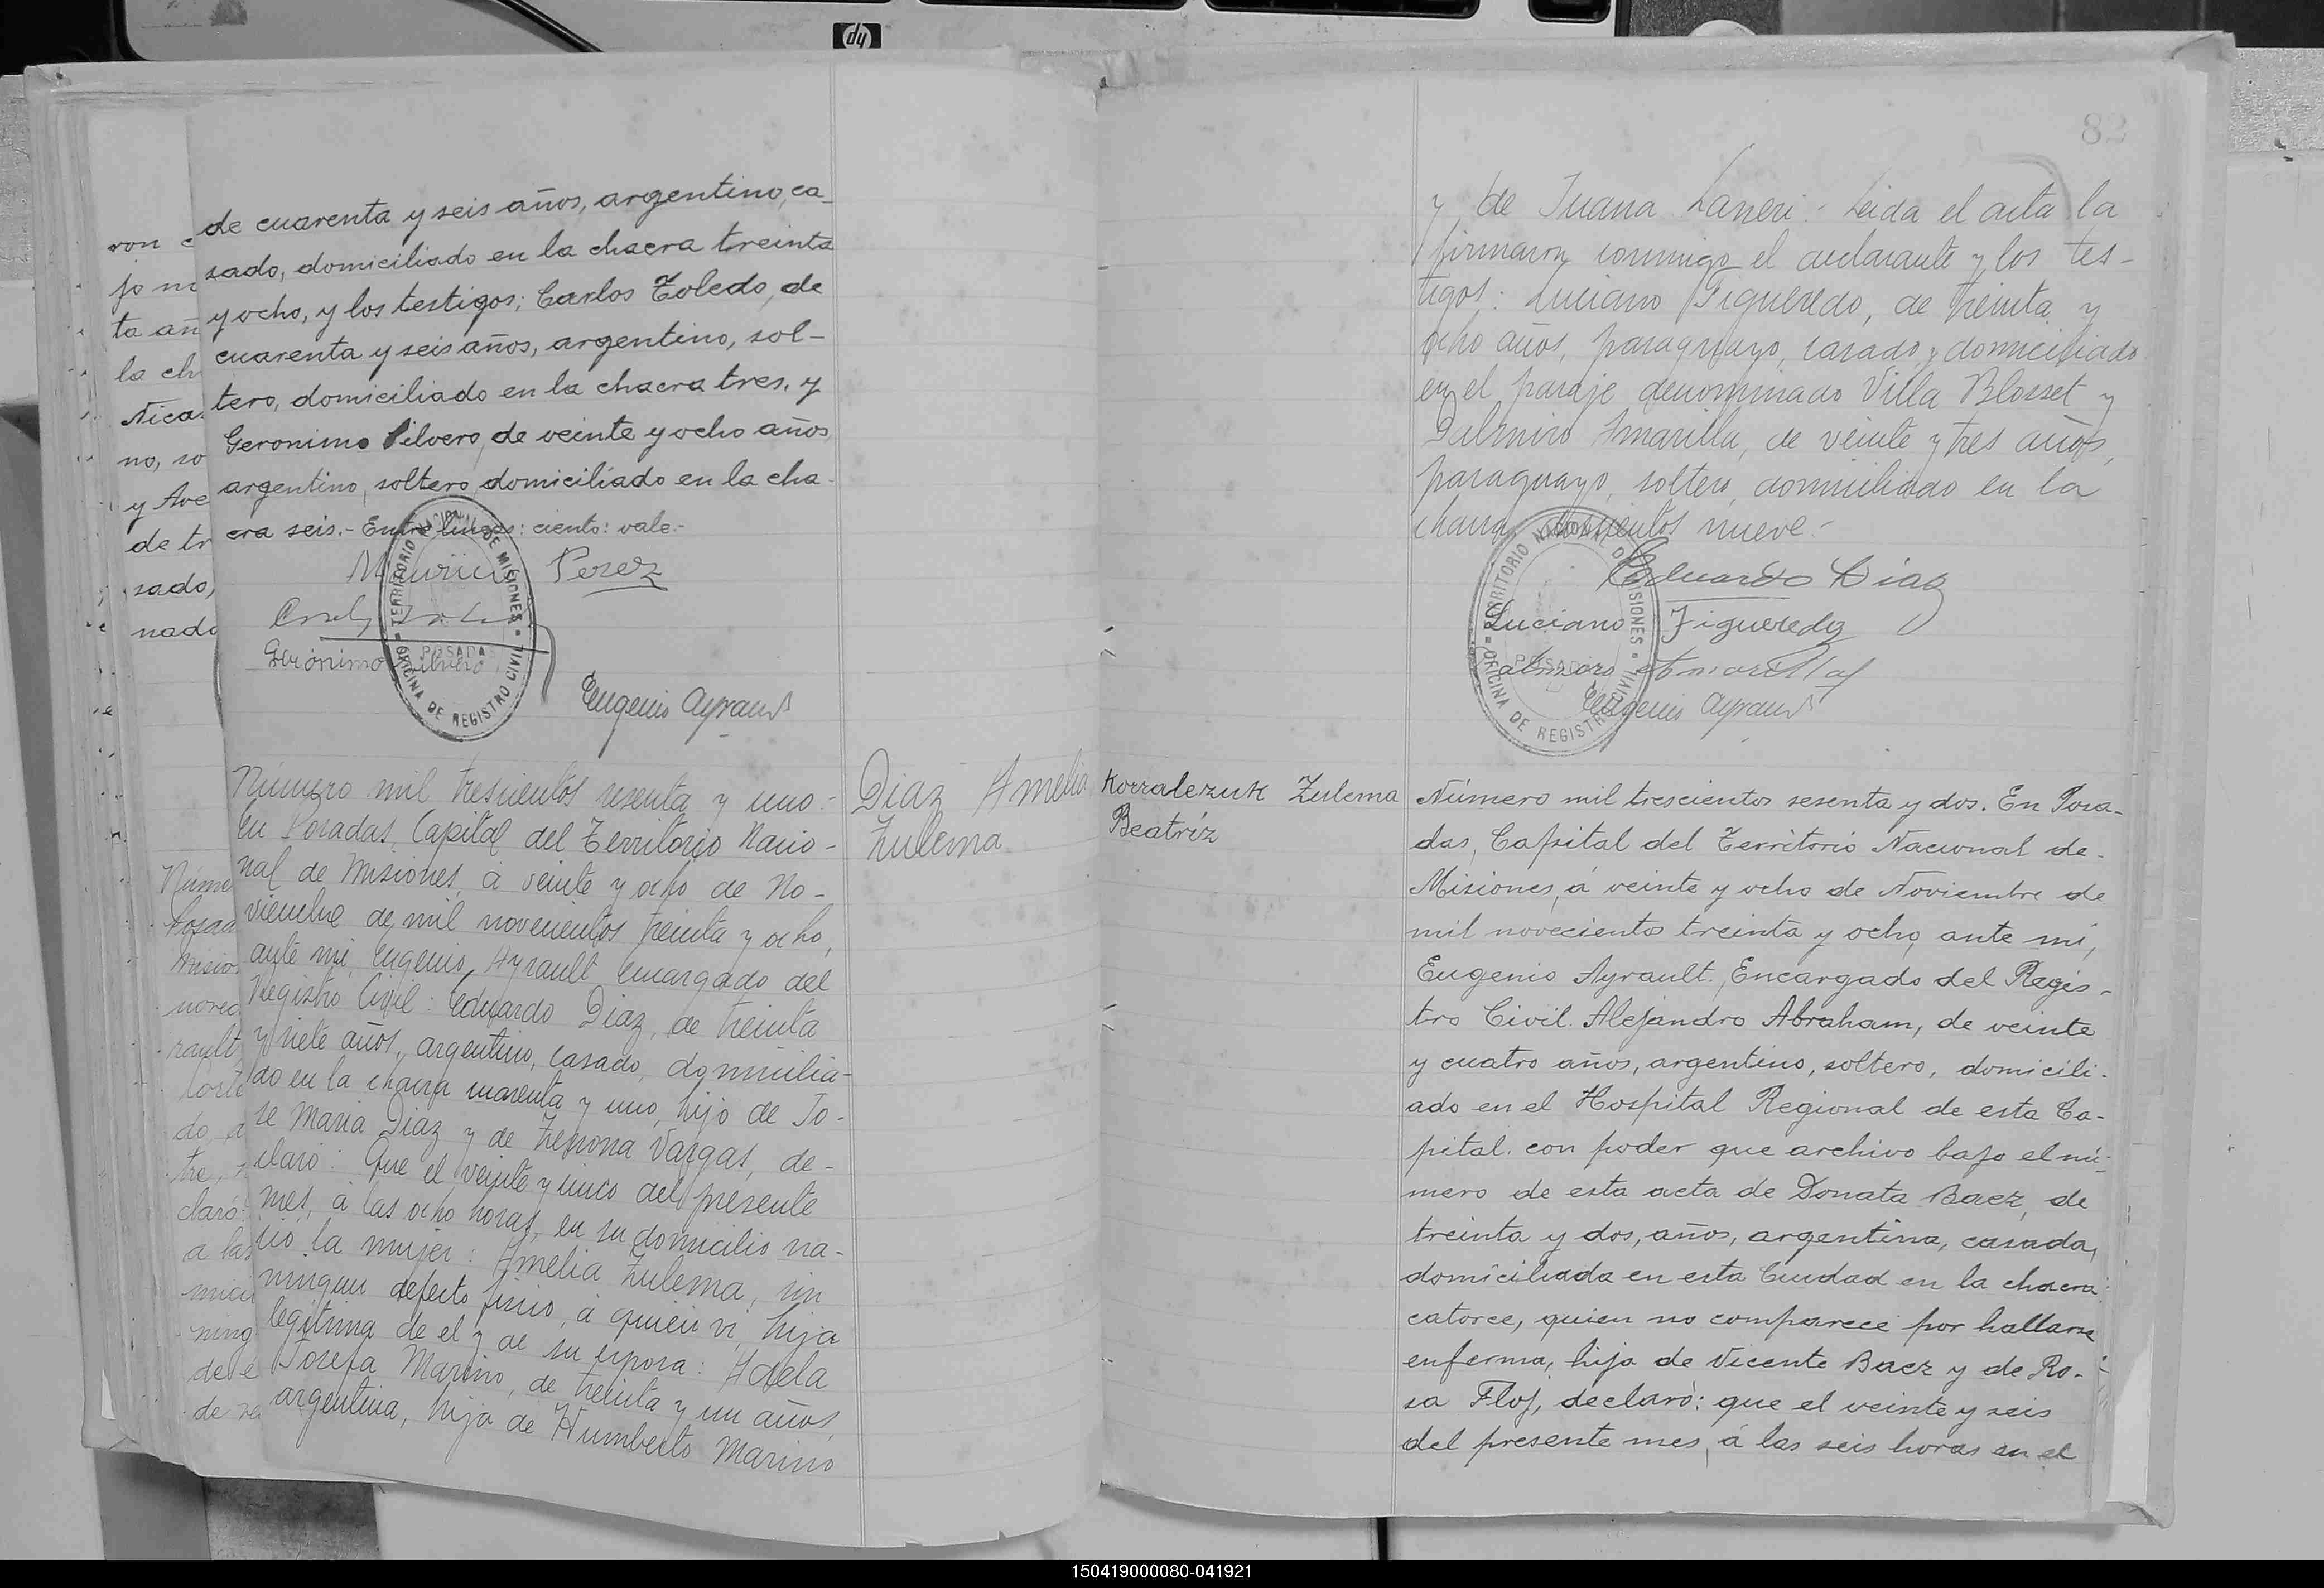 hp
de cuarenta y seis años, argentino, ca-
sado, domiciliado en la chacra treinta
y ocho, y los testigos; Carlos Toledo, de
cuarenta y seis años, argentino, sol-
tero, domiciliado en la chacra tres, y
Geronimo Silvero, de veinte y ocho años
argentino, soltero, domiciliado en la cha-
cra seis.- Entre lineas: ciento: vale.-
Mauricio Perez
Geronimo Silvero
Eugenio Ayrault
TERRITORIO NACIONAL DE MISIONES
POSADAS
OFICINA DE REGISTRO CIVIL
Diaz Amelia
Zulema
Número mil trescientos sesenta y uno.-
En Posadas, Capital del Territorio Nacio-
nal de Misiones, á veinte y ocho de No-
viembre de mil novecientos treinta y ocho,
ante mi, Eugenio Ayrault Encargado del
Registro Civil: Eduardo Diaz, de treinta
y siete años, argentino, casado, domicilia-
do en la chacra cuarenta y uno, hijo de Jo-
se Maria Diaz y de Zenona Vargas, de-
claró: Que el veinte y cinco del presente
mes, á las ocho horas, en su domicilio na-
ció la mujer: Amelia Zulema, sin
ningun defecto fisico, á quien vi, hija
legitima de el y de su esposa: Adela
Josefa Marino, de treinta y un años,
argentina, hija de Humberto Marino
ron
jo
ta añ
la ch
Nica
no, so
y Ave
de tr
sado,
nado
Núme
Posad
Misio
novec
rault
do, a
tre,
claró:
a las
ning
de é
de
82
y de Juana Laneri.- Leida el acta la
firmaron conmigo el declarante y los tes-
tigos: Luciano Figueredo, de treinta y
ocho años, paraguayo, casado, y domiciliado
en el paraje denominado Villa Blosset y
Dalmiro Amarilla, de veinte y tres años,
paraguayo, soltero, domiciliado en la
chacra doscientos nueve.-
Eduardo Diaz
Luciano Figueredo
Amarilla
Eugenio Ayrault
TERRITORIO NACIONAL DE MISIONES
POSADAS
OFICINA DE REGISTRO CIVIL
Korralezuk Zulema
Beatríz
Número mil trescientos sesenta y dos. En Posa-
das, Capital del Territorio Nacional de
Misiones, á veinte y ocho de Noviembre de
mil novecientos treinta y ocho, ante mi,
Eugenio Ayrault, Encargado del Regis-
tro Civil. Alejandro Abraham, de veinte
y cuatro años, argentino, soltero, domicili-
ado en el Hospital Regional de esta Ca-
pital. con poder que archivo bajo el nú-
mero de esta acta de Donata Baez, de
treinta y dos, años, argentina, casada,
domiciliada en esta Ciudad en la chacra
catorce, quien no comparece por hallarse
enferma, hija de Vicente Baez y de Ro-
sa Flof, declaró: que el veinte y seis
del presente mes, á las seis horas en el
150419000080-041921